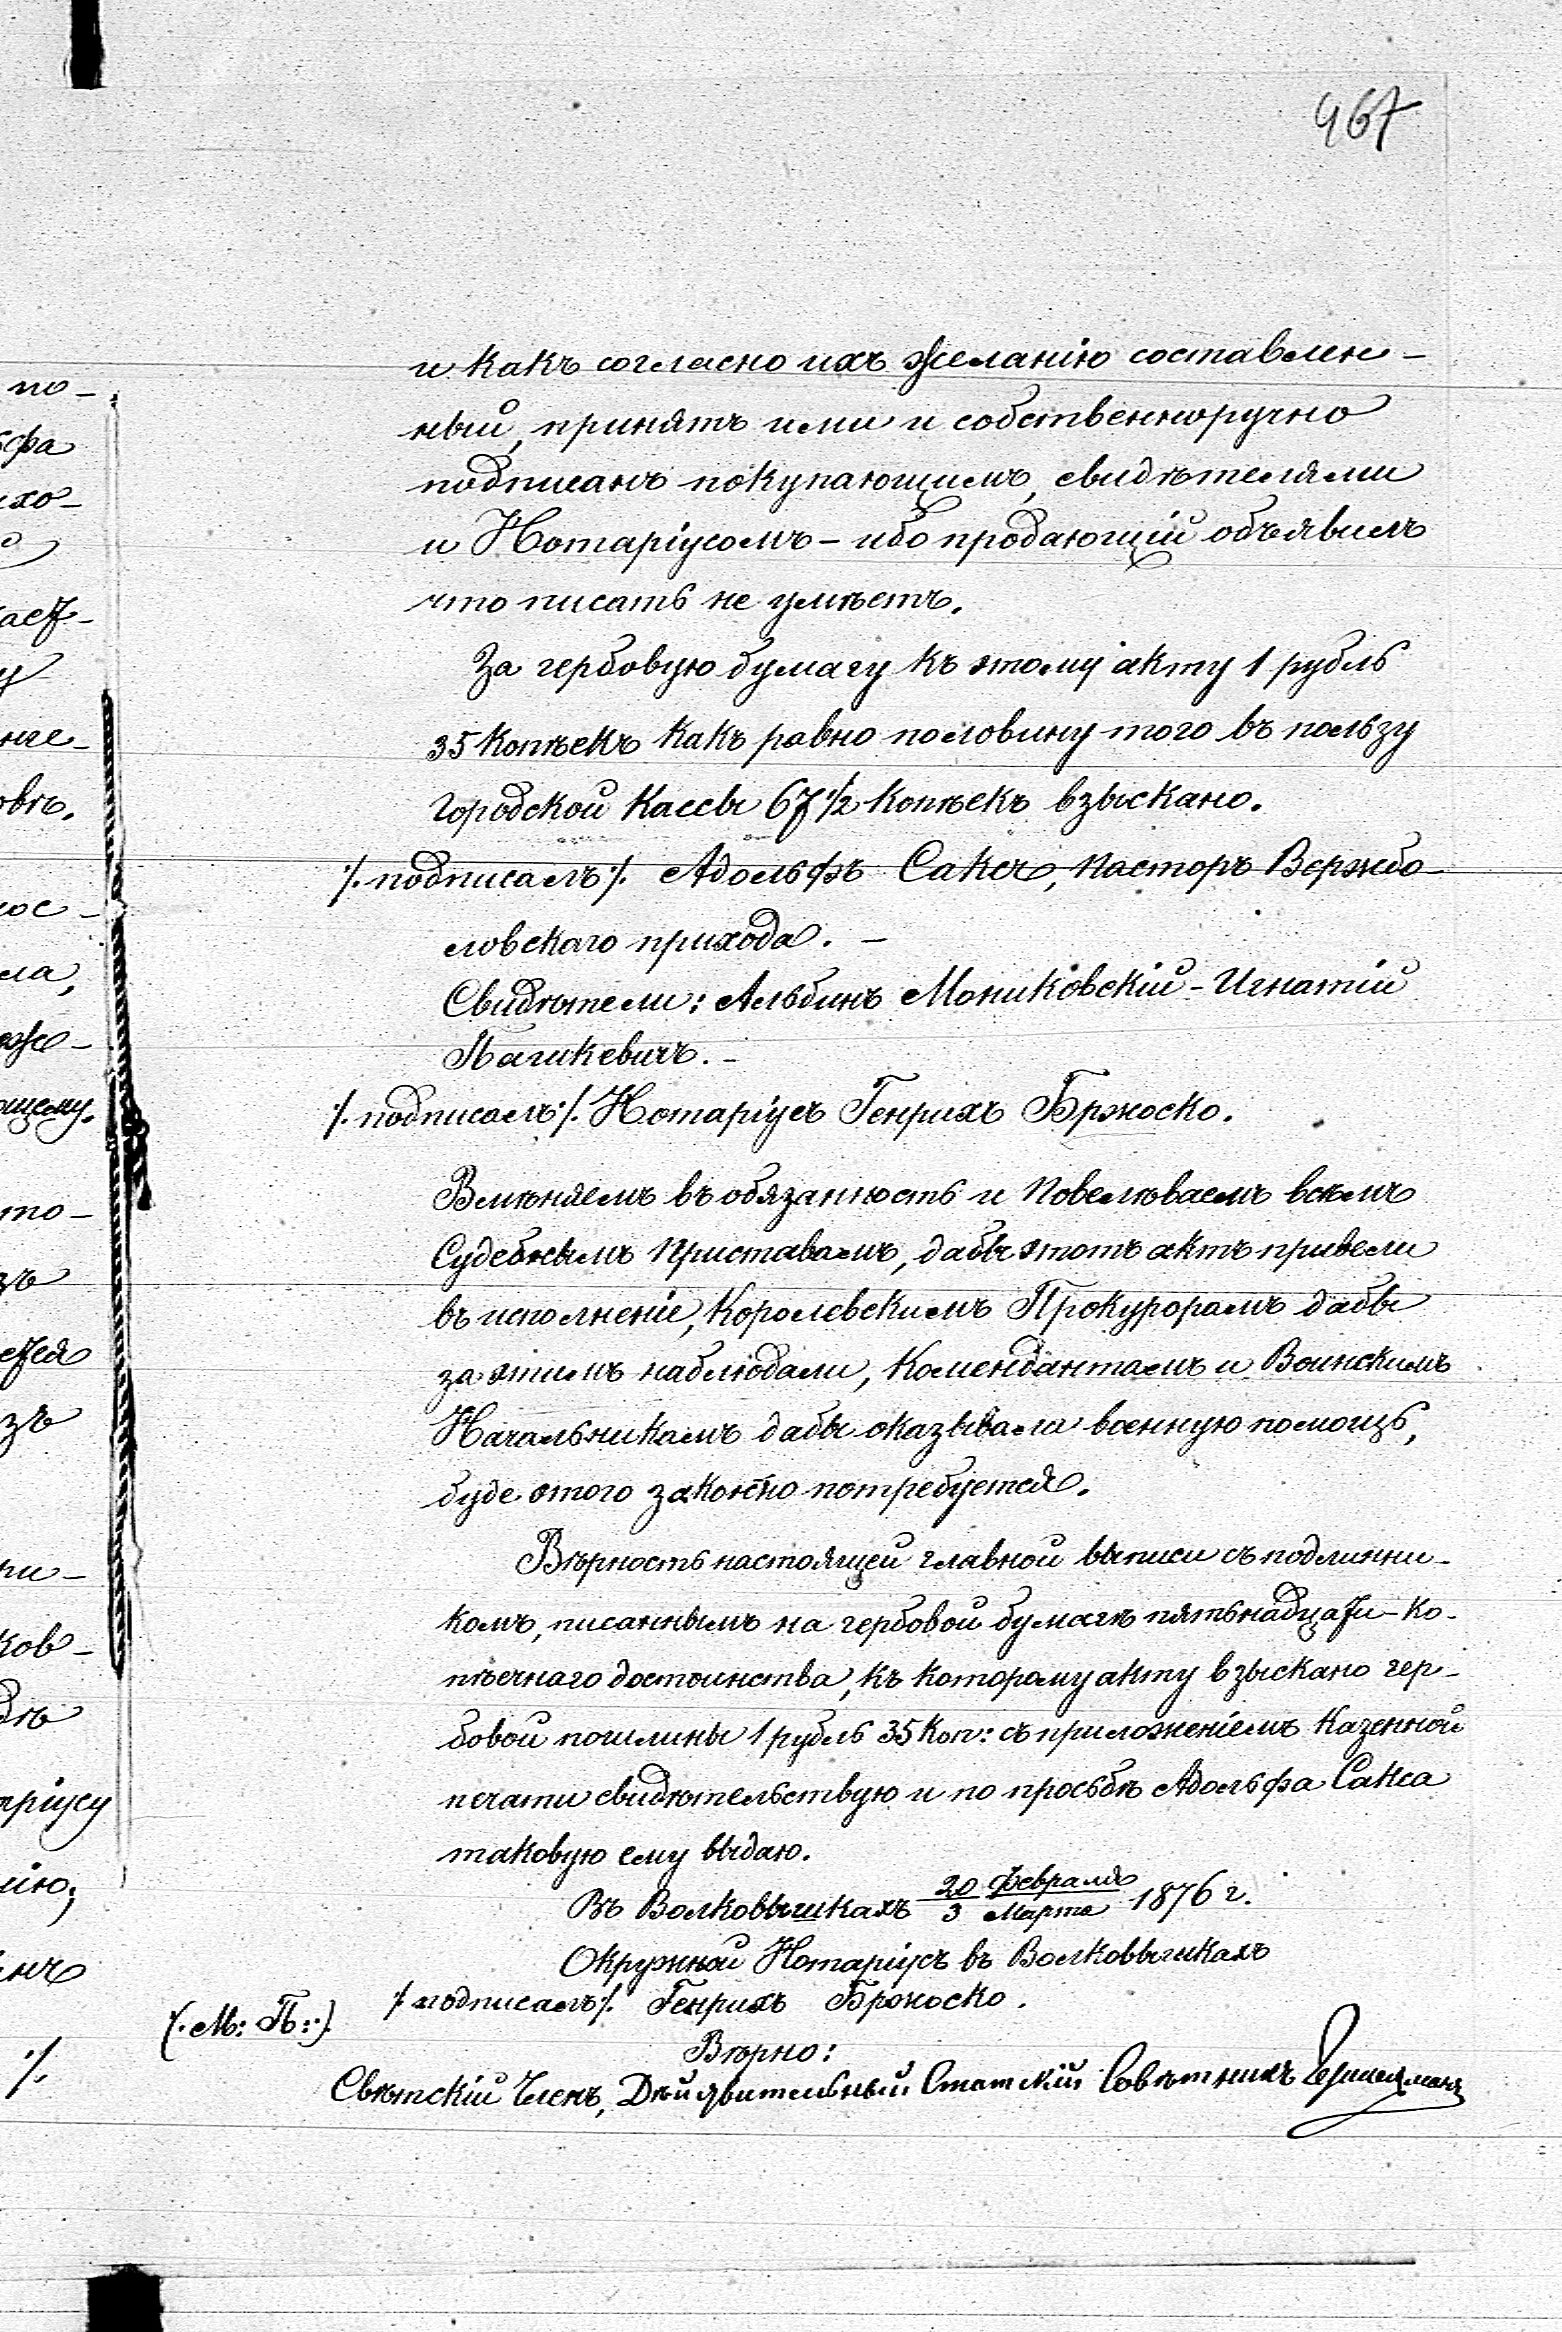 467
и какъ согласно ихъ желанію составлен-
ный, принятъ ими и собственноручно
подписанъ покупающимъ, свидѣтелями
и Нотаріусомъ – ибо продающій объявилъ
что писать не умѣетъ.
За гербовую бумагу къ этому акту 1 рубль
35 копѣекъ какъ равно половину того въ пользу
городской Кассы 67 1/2 копѣекъ взыскано.
/. подписалъ ./. Адольфъ Саксъ, пасторъ Вержбо-
ловскаго прихода. –
Свидѣтели: Альбинъ Мониковскій - Игнатій
Пашкевичъ. –
/. подписалъ ./. Нотаріусъ Генрихъ Бржоско.
Вмѣняемъ въ обязанность и повелѣваемъ всѣмъ
Судебнымъ Приставамъ, дабы этотъ актъ привели
въ исполненіе, Королевскимъ Прокурорамъ дабы
за этимъ наблюдали, Комендантамъ и Воинскимъ
Начальникамъ дабы оказывали военную помощь,
буде этого законно потребуется.
Вѣрность настоящей главной выписи съ подлинни-
комъ, писаннымъ на гербовой бумагѣ пятьнадцати-ко-
пѣечнаго достоинства, къ которому акту взыскано гер-
бовой пошлины 1 рубль 35 коп: съ приложеніемъ казенной
печати свидѣтельствую и по просьбѣ Адольфа Сакса
таковую ему выдаю.
Въ Волковышкахъ 20 Февраля / 3 Марта 1876 г.
Окружной Нотаріусъ въ Волковышкахъ
/. подписалъ ./. Генрихъ Бржоско.
(. М: П: .)
Вѣрно:
Свѣтскій Членъ, Дѣйствительный Статскій Совѣтникъ
по-
хо-
овъ.
ла,
ющему.
то-
зъ
зъ
ков-
ріусу
нію;
./.